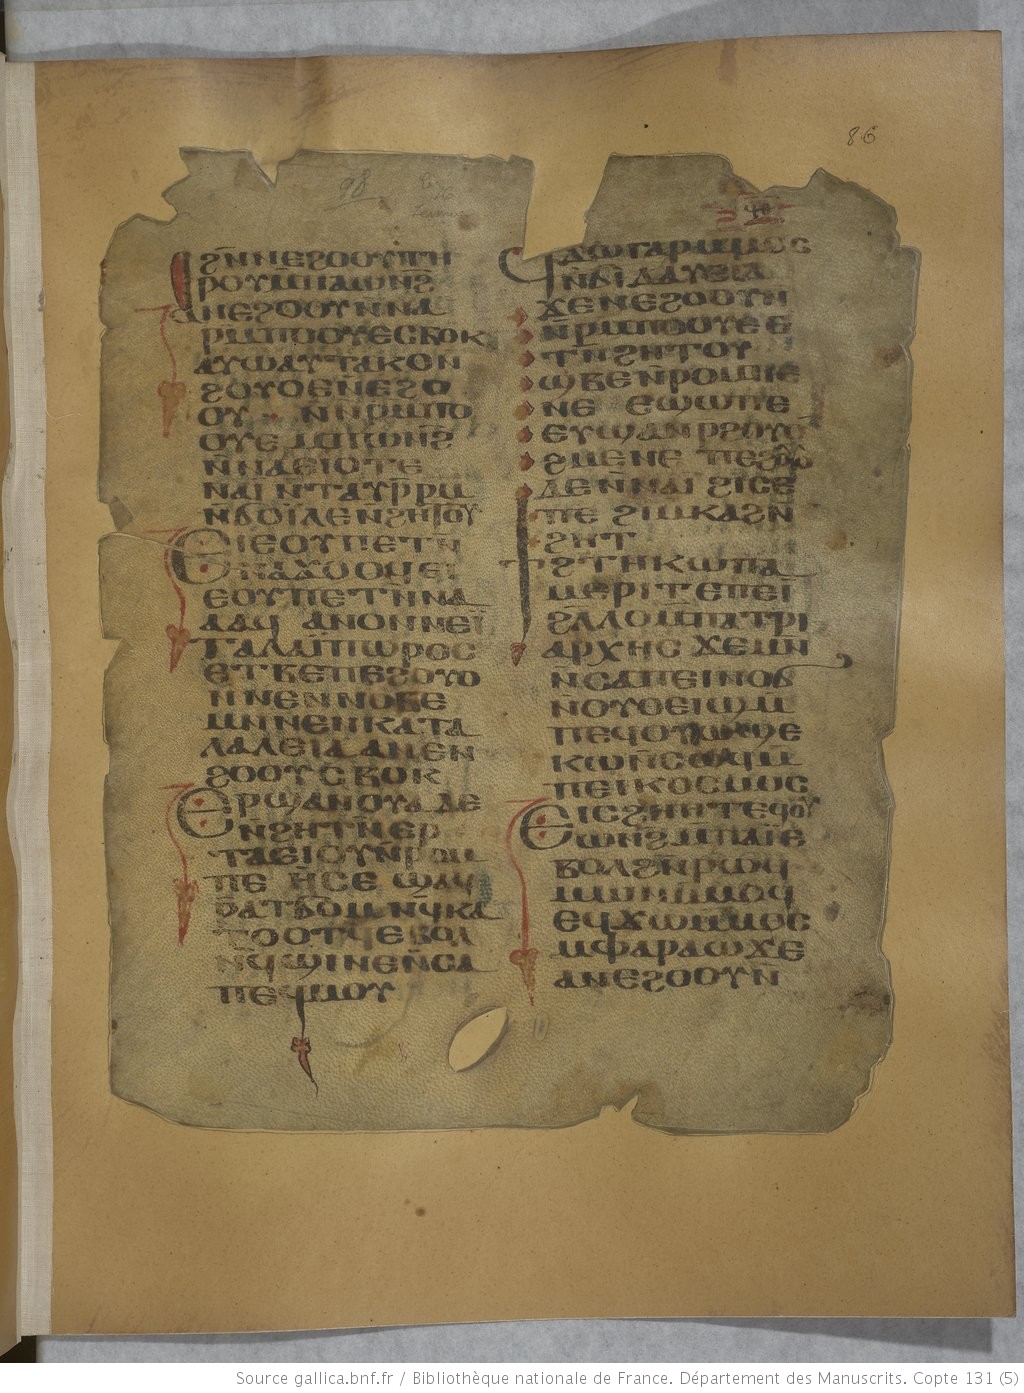 86
98
ϩⲛⲛⲉϩⲟⲟⲩⲧⲏ
ⲣⲟⲩⲙⲡⲁⲱⲛϩ
ⲁⲛⲉϩⲟⲟⲩⲛⲛⲁ
ⲣⲙⲡⲟⲟⲩⲉⲥⲃⲟⲕ
ⲁⲩⲱⲁⲩⲧⲁⲕⲟⲛ
ϩⲟⲩⲟⲉⲛⲉϩⲟ
ⲟⲩ ⲛⲛⲣⲙⲡⲟ
ⲟⲩⲉⲙⲡⲱⲛϩ
ⲛⲛⲁⲉⲓⲟⲧⲉ
ⲛⲁⲓ ⲛⲧⲁⲩⲣⲣⲙ
ⲛϭⲟⲓⲗⲉⲛϩⲏⲧⲟⲩ
ⲉⲓⲉⲟⲩⲡⲉⲧⲛ
ⲛⲁϫⲟⲟϥⲉⲓ
ⲉⲟⲩⲡⲉⲧⲛⲛⲁ
ⲁⲁϥ ⲁⲛⲟⲛⲛⲉⲓ
ⲧⲁⲗⲁⲓⲡⲱⲣⲟⲥ
ⲉⲧⲃⲉⲡⲉϩⲟⲩⲟ
ⲛⲛⲉⲛⲛⲟⲃⲉ
ⲙⲛⲛⲉⲛⲕⲁⲧⲁ
ⲗⲁⲗⲉⲓⲁ ⲁⲛⲉⲛ
ϩⲟⲟⲩⲥⲃⲟⲕ
ⲉⲣϣⲁⲛⲟⲩⲁ ⲇⲉ
ⲛϩⲏⲧⲛⲉⲣ
ⲧⲁⲉⲓⲟⲩⲛⲣⲟⲙ
ⲡⲉ ⲏⲥⲉ ϣⲁϥ
ⲣⲁⲧϭⲟⲙ ⲛϥⲕⲁ
ⲧⲟⲟⲧϥⲉⲃⲟⲗ
ⲛϥϣⲓⲛⲉⲛⲥⲁ
ⲡⲉϥⲙⲟⲩ
ϥϫⲱⲅⲁⲣⲙⲙⲟⲥ
ⲛϭⲓⲇⲁⲩⲉⲓⲇ
ϫⲉⲛⲉϩⲟⲟⲩⲛ
ⲛⲣⲙⲡⲟⲟⲩⲉ ⲉ
ⲧⲛϩⲏⲧⲟⲩ
ϣⲃⲉⲛⲣⲟⲙⲡⲉ
ⲛⲉ ⲉϣⲱⲡⲉ
ⲉⲩϣⲁⲛⲣϩⲟⲩⲟ
ϩⲙⲉⲛⲉ ⲡⲉϩⲟⲩⲟ
ⲇⲉⲛⲛⲁⲓ ϩⲓⲥⲉ
ⲡⲉ ϩⲓⲙⲕⲁϩⲛ
ϩⲏⲧ
ϯϩⲧⲏⲕⲱⲡⲁ
ⲙⲉⲣⲓⲧⲉⲡⲉⲓ
ϩⲗⲗⲟⲙⲡⲁⲧⲣⲓ
ⲁⲣⲭⲏⲥ ϫⲉⲙⲛ
ⲛⲥⲁⲡⲉⲓⲛⲟϭ
ⲛⲟⲩⲟⲉⲓϣⲙ
ⲡⲉϥⲟⲩⲱϣⲉ
ⲕⲱⲛⲥⲱϥⲙ
ⲡⲉⲓⲕⲟⲥⲙⲟⲥ
ⲉⲓⲥϩⲏⲏⲧⲉϥⲟⲩ
ⲱⲛϩⲙⲡⲁⲓⲉ
ⲃⲟⲗϩⲛⲣⲱϥ
ⲙⲙⲓⲛⲙⲙⲟϥ
ⲉϥϫⲱⲙⲙⲟⲥ
ⲙⲫⲁⲣⲁⲱϫⲉ
ⲁⲛⲉϩⲟⲟⲩⲛ
Source gallica.bnf.fr / Bibliothèque nationale de France. Département des Manuscrits. Copte 131 (5)